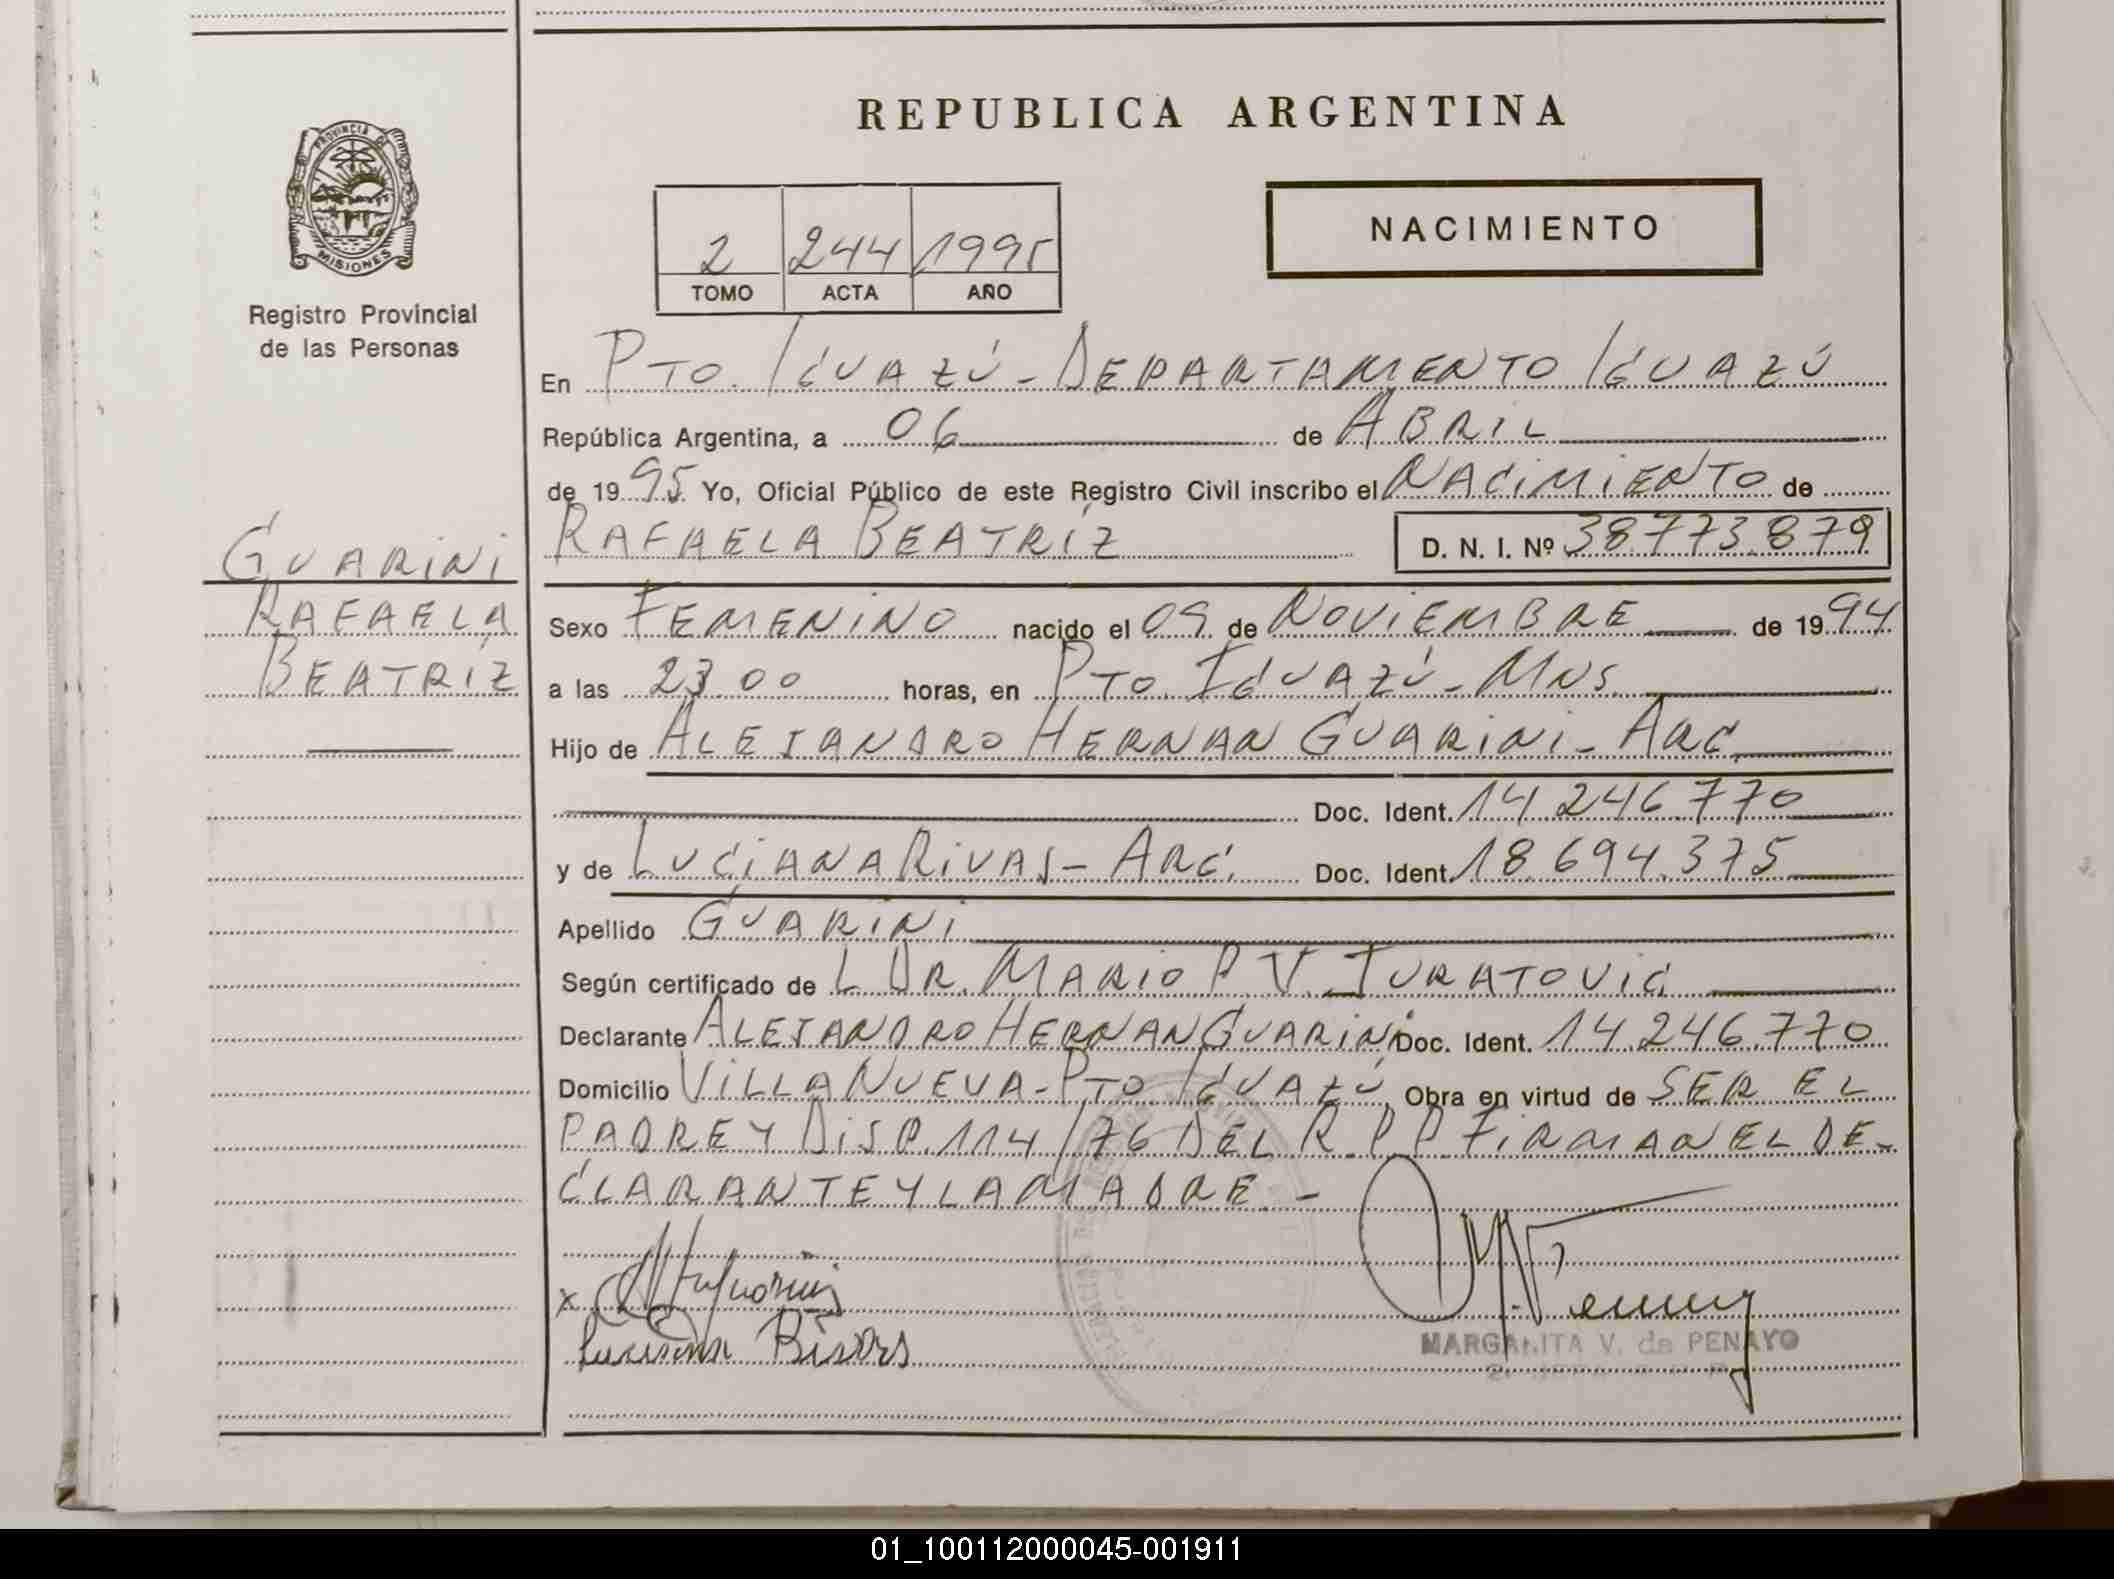 REPUBLICA ARGENTINA
PROVINCIA DE
MISIONES
Registro Provincial
de las Personas
NACIMIENTO
2 244 1995
TOMO ACTA AÑO
En PTO. IGUAZÚ - DEPARTAMENTO IGUAZÚ
República Argentina, a 06 de ABRIL
de 1995 Yo, Oficial Público de este Registro Civil inscribo el NACIMIENTO de
RAFAELA BEATRÍZ D. N. I. Nº 38.773.879
GUARINI
RAFAELA
BEATRÍZ
Sexo FEMENINO nacido el 09 de NOVIEMBRE de 1994
a las 23.00 horas, en PTO. IGUAZÚ - MNS.
Hijo de ALEJANDRO HERNAN GUARINI - ARG.
Doc. Ident. 14.246.770
y de LUCIANA RIVAS - ARG. Doc. Ident. 18.694.375
Apellido GUARINI
Según certificado de L DR. MARIO P. V. JURATOVIC
Declarante ALEJANDRO HERNAN GUARINI Doc. Ident. 14.246.770
Domicilio VILLA NUEVA - PTO. IGUAZÚ Obra en virtud de SER EL
PADRE Y DISP. 114/76 DEL R.P.P. FIRMAN EL DE-
CLARANTE Y LA MADRE. -
x
Luciana Rivas
MARGARITA V. de PENAYO
01_100112000045-001911